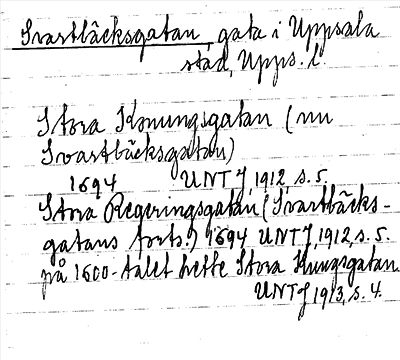 Svartbäcksgatan, gata i Uppsala
stad, Upps. l.
Stora Konungsgatan (nu
Svartbäcksgatan)
1694 UNTJ, 1912, s. 5.
Stora Regeringsgatan (Svartbäcks-
gatans forts.) 1694 UNTJ, 1912, s. 5.
på 1600-talet hette Stora Kungsgatan
UNTJ 1913, s. 4.